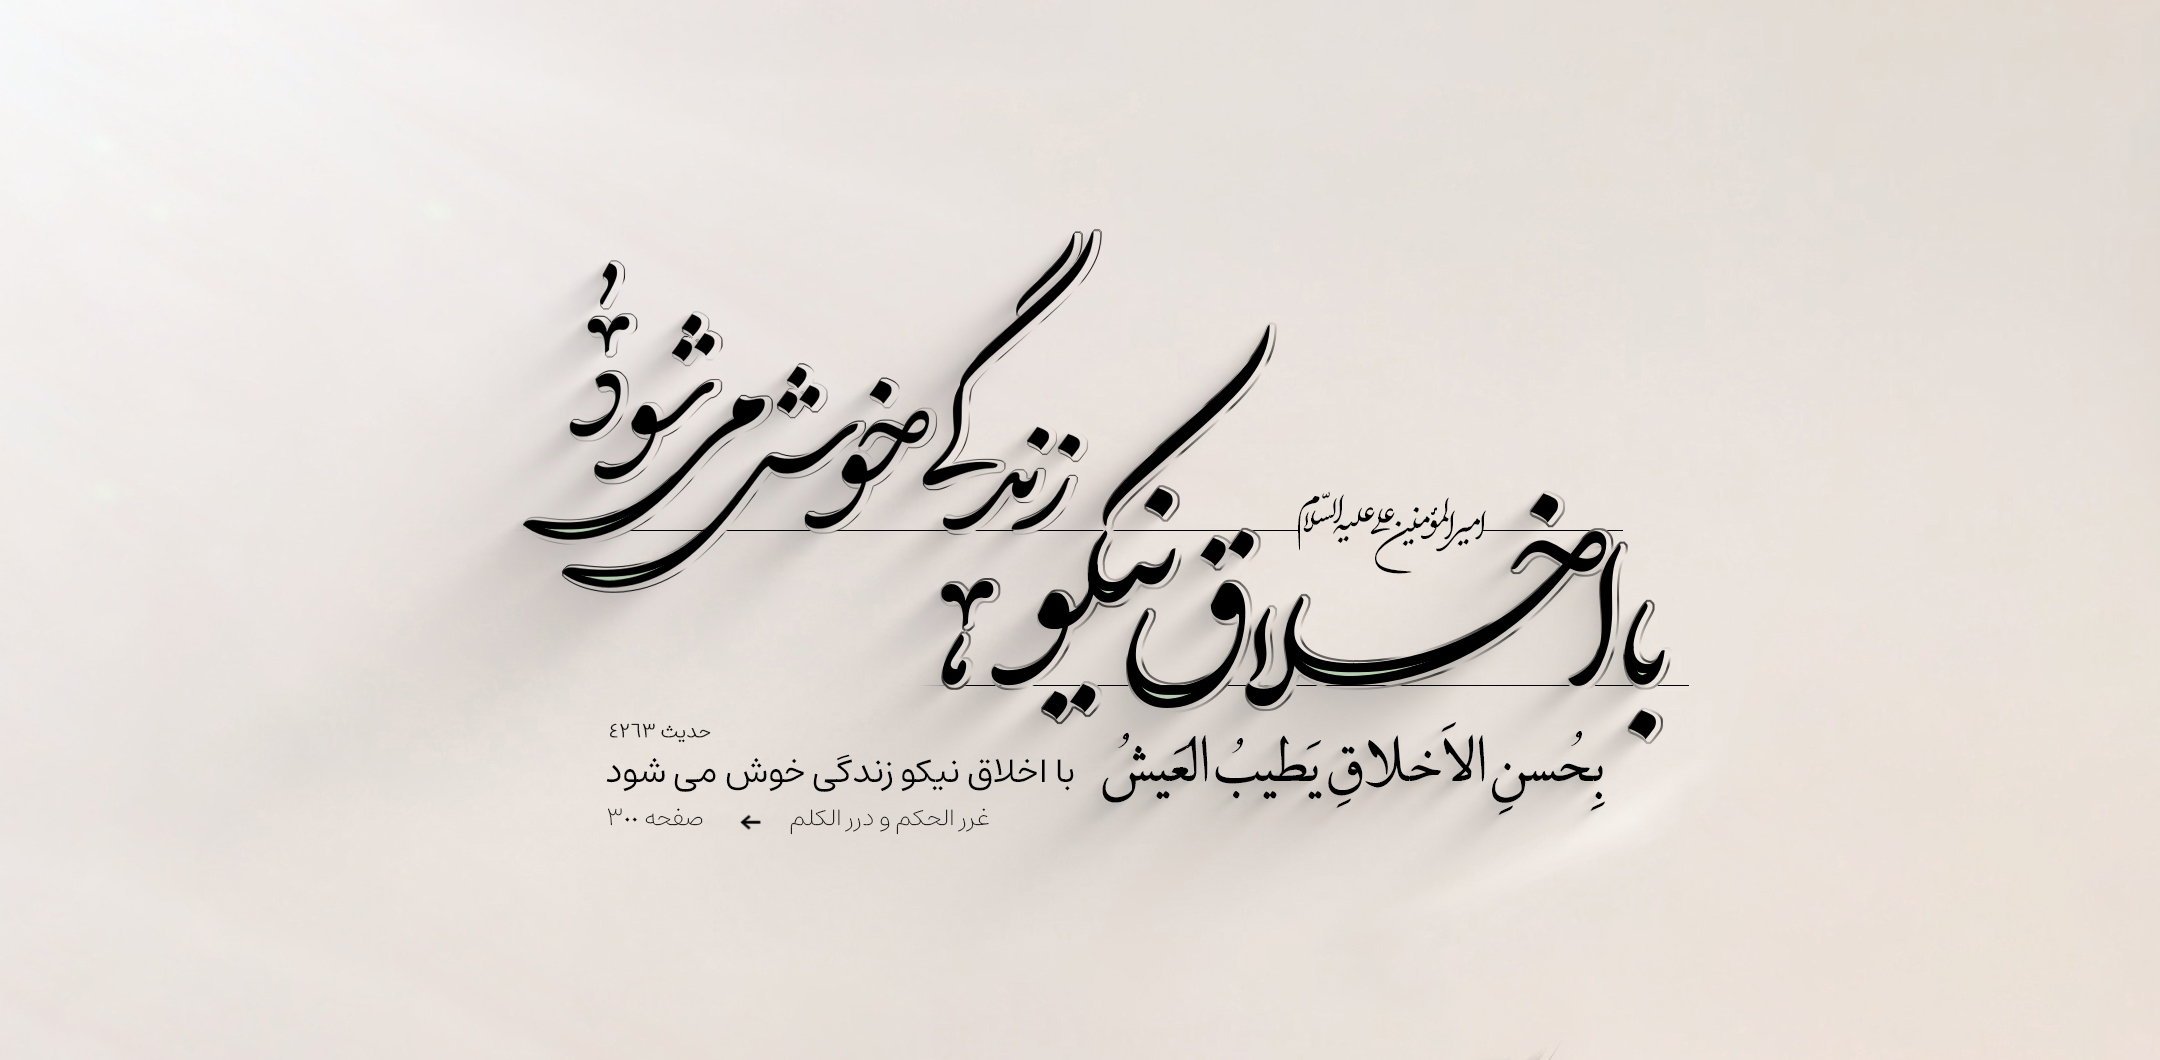 با اخلاق نیکو
زندگی خوش می شود
امیرالمؤمنین علی علیه السّلام
بِحُسنِ الاَخلاقِ یَطیبُ العَیشُ
حدیث ٤٢٦٣
با اخلاق نیکو زندگی خوش می شود
غرر الحکم و درر الکلم ← صفحه ٣٠٠